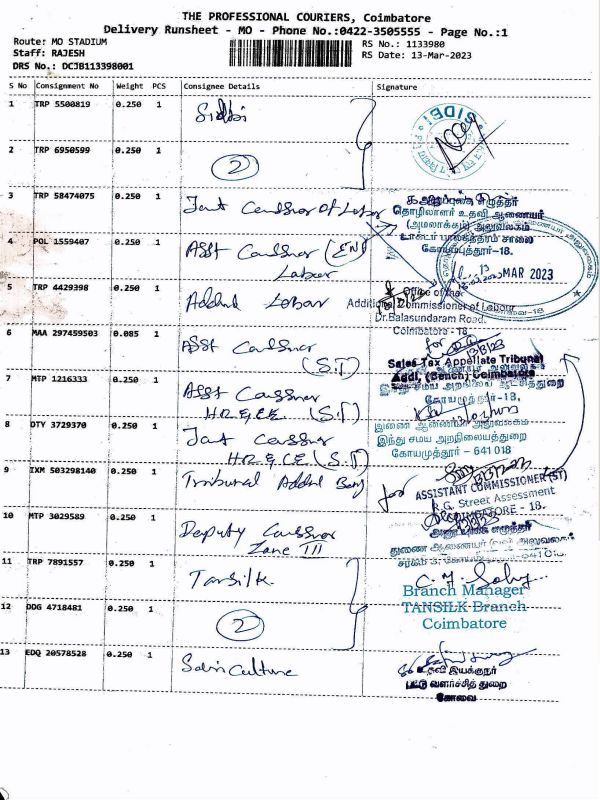 THE PROFESSIONAL COURIERS, Coimbatore
Delivery Runsheet - MO - Phone No.:0422-3505555 - Page No.:1
Route: MO STADIUM
Staff: RAJESH
DRS No.: DCJB113398001
RS No.: 1133980
RS Date: 13-Mar-2023
S No Consignment No Weight PCS Consignee Details Signature
1 TRP 5500819 0.250 1 Sidbi
SIDBI
2 TRP 6950599 0.250 1 2
3 TRP 58474075 0.250 1 Joint Caussner Of Labar
தொழிலாளர் உதவி ஆணையர்
(அமலாக்கம்) அலுவலகம்
டாக்டர் பாலசுந்தரம் சாலை
கோயமுத்தூர்-18.
4 POL 1559407 0.250 1 Asst Caussner (ENF
Labour
MAR 2023
5 TRP 4429398 0.250 1 Addnl Lobar
Office of the
Additional Commissioner of Labour
Dr.Balasundaram Road,
Coimbatore - 18.
6 MAA 297459503 0.085 1 Asst Caussner
(S.T)
for
13/3/23
Sales Tax Appellate Tribunal
Addl. (Bench) Coimbatore
7 MTP 1216333 0.250 1 Asst Caussner
HR & CE (S.T)
இந்து சமய அறநிலைய ஆட்சித்துறை
கோயமுத்தூர்-18.
8 DTY 3729370 0.250 1 Joint Caussner
HR & CE (S.T)
இணை ஆணையர் அலுவலகம்
இந்து சமய அறநிலையத்துறை
கோயமுத்தூர் - 641 018
9 IXM 503298140 0.250 1 Tribunal Addnl Benj
for
ASSISTANT COMMISSIONER (ST)
R.G. Street Assessment
COIMBATORE - 18.
10 MTP 3029589 0.250 1 Deputy Caussner
Zone III
துணை ஆணையர்
11 TRP 7891557 0.250 1 Tansilk
Branch Manager
TANSILK Branch
Coimbatore
12 DDG 4718481 0.250 1 2
13 EDQ 20578528 0.250 1 Sericulture
உதவி இயக்குநர்
பட்டு வளர்ச்சித் துறை
கோவை